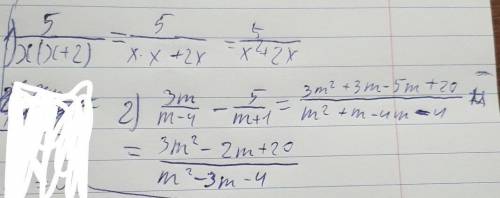 1) 5/(x(x+2)) = 5/(x·x+2x) = 5/(x²+2x)
2) 3m/(m-4) - 5/(m+1) = (3m²+3m-5m+20)/(m²+m-4m-4) =
= (3m²-2m+20)/(m²-3m-4)